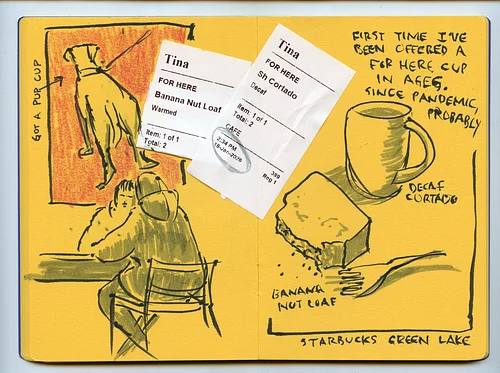 GOT A PUP CUP
Tina
FOR HERE
Banana Nut Loaf
Warmed
Item: 1 of 1
Total: 2
Tina
FOR HERE
Sh Cortado
Decaf
Item: 1 of 1
Total: 2
CAFE
2:34 PM
389
Reg 1
FIRST TIME I'VE
BEEN OFFERED A
FOR HERE CUP
IN AGES.
SINCE PANDEMIC,
PROBABLY
DECAF
CORTADO
BANANA
NUT LOAF
STARBUCKS GREEN LAKE